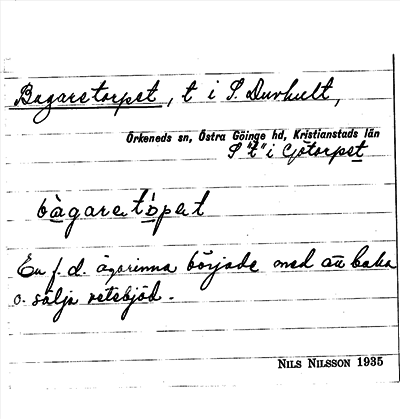 Bagaretorpet, t i S. Duvhult,
Örkeneds sn, Östra Göinge hd, Kristianstads län
S "t" i Götorpet
bàgaretòpet
En f. d. ägarinna började med att baka
o. sälja vetebjöd.
NILS NILSSON 1935